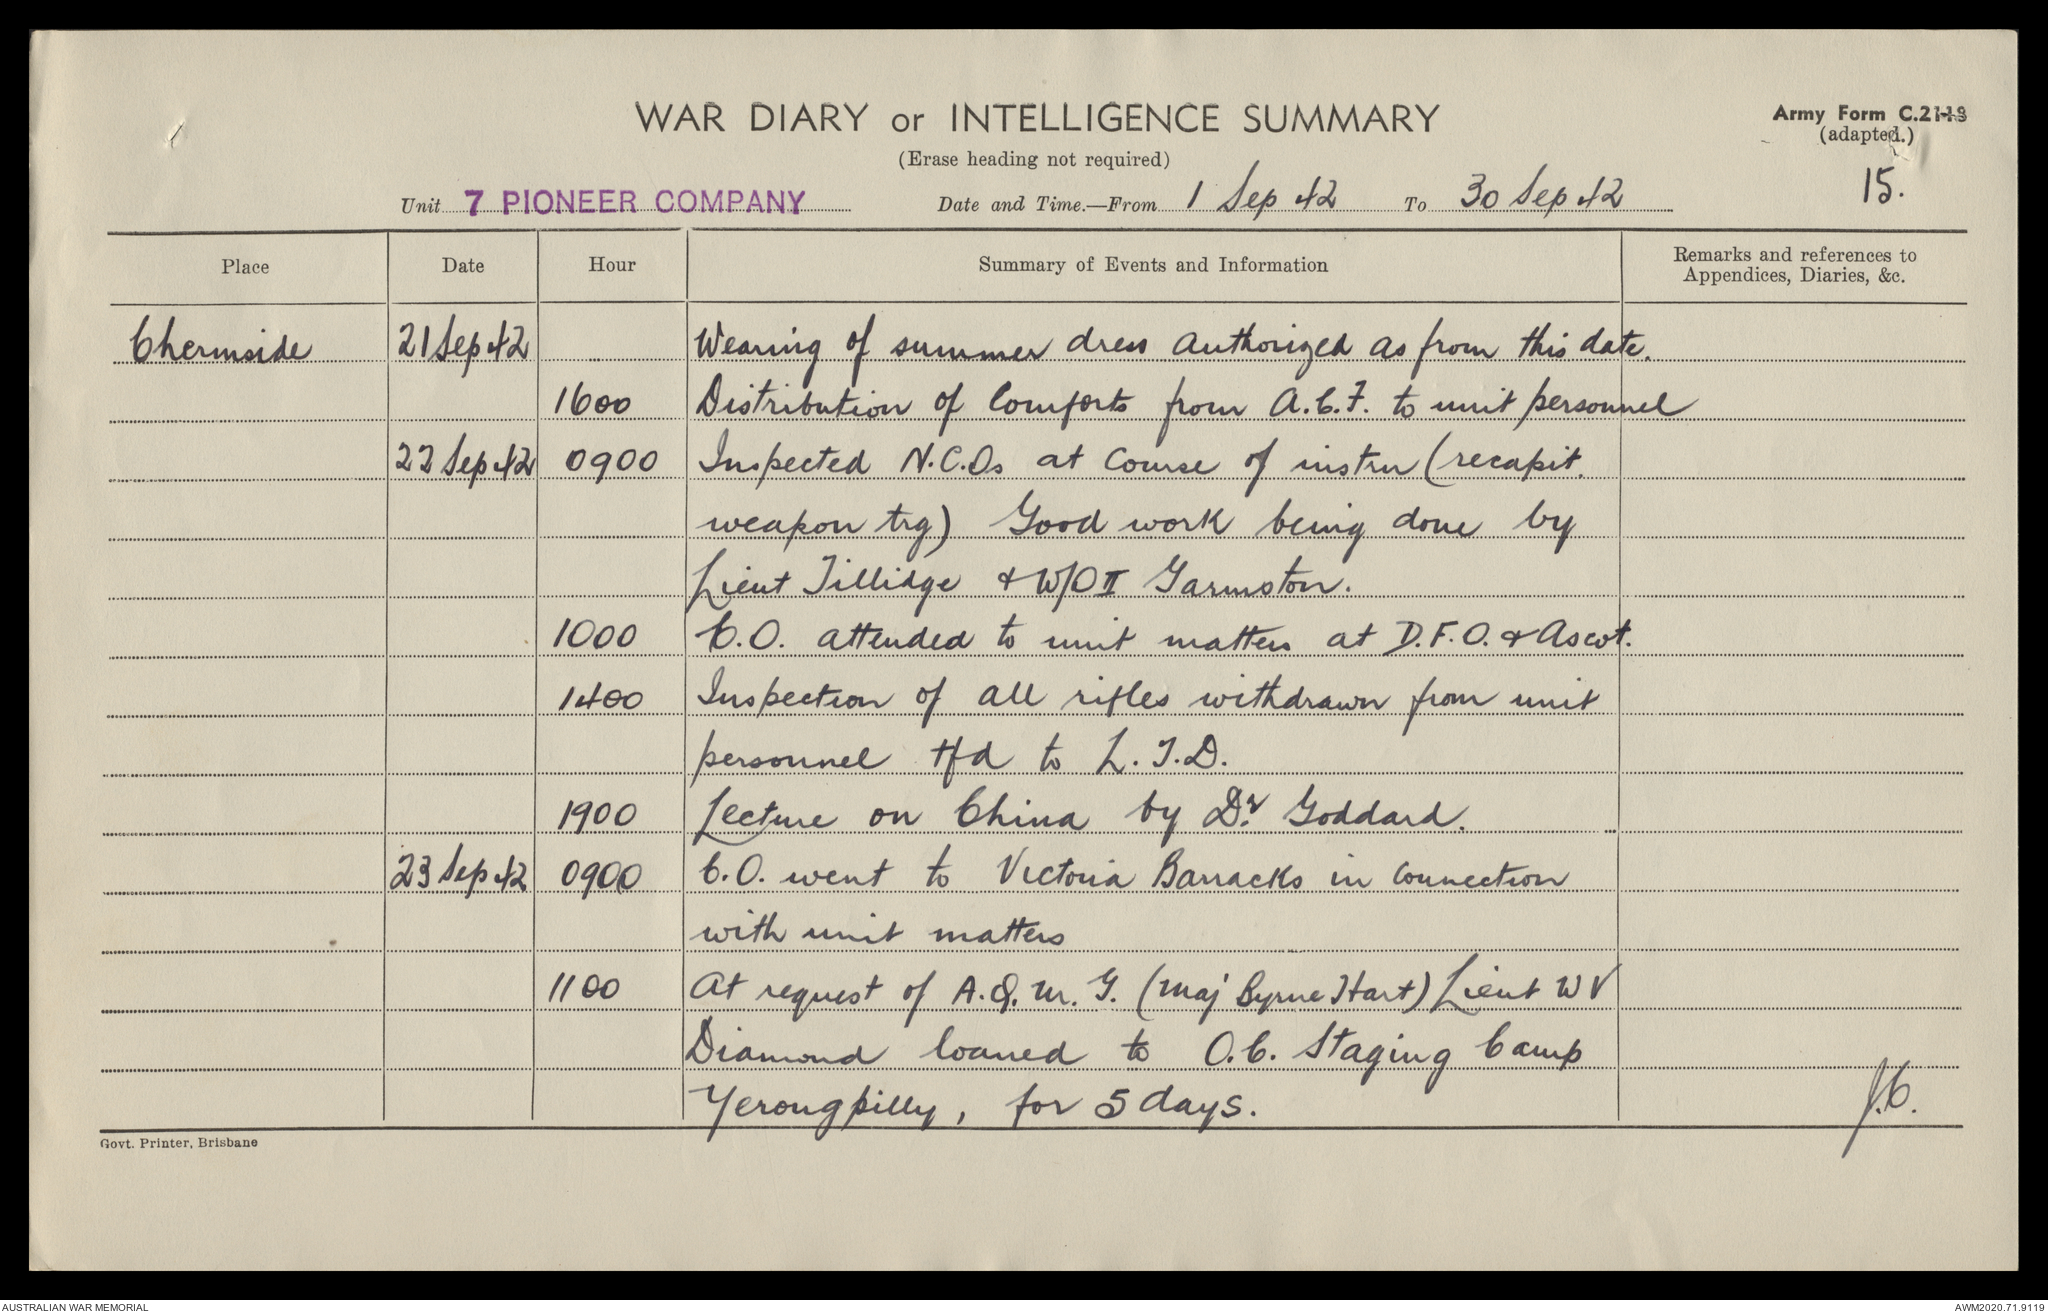 WAR DIARY or INTELLIGENCE SUMMARY
Army Form C.2118
(adapted.)
(Erase heading not required)
15.
Unit 7 PIONEER COMPANY Date and Time.—From 1 Sep 42 To 30 Sep 42
Place Date Hour Summary of Events and Information Remarks and references to Appendices, Diaries, &c.
Chermside 21 Sep 42 Wearing of summer dress authorized as from this date.
1600 Distribution of Comforts from A.C.F. to unit personnel
22 Sep 42 0900 Inspected N.C.Os at Course of instrn (recapit.
weapon trg) Good work being done by
Lieut Tillidge & W/O II Garmston.
1000 C.O. attended to unit matters at D.F.O. & Ascot.
1400 Inspection of all rifles withdrawn from unit
personnel tfd to L.T.D.
1900 Lecture on China by Dr. Goddard.
23 Sep 42 0900 C.O. went to Victoria Barracks in connection
with unit matters
1100 At request of A.Q.M.G. (Maj Byrne Hart) Lieut W V
Diamond loaned to O.C. Staging Camp
Yerongpilly, for 5 days.
J.C.
Govt. Printer, Brisbane
AUSTRALIAN WAR MEMORIAL
AWM2020.71.9119